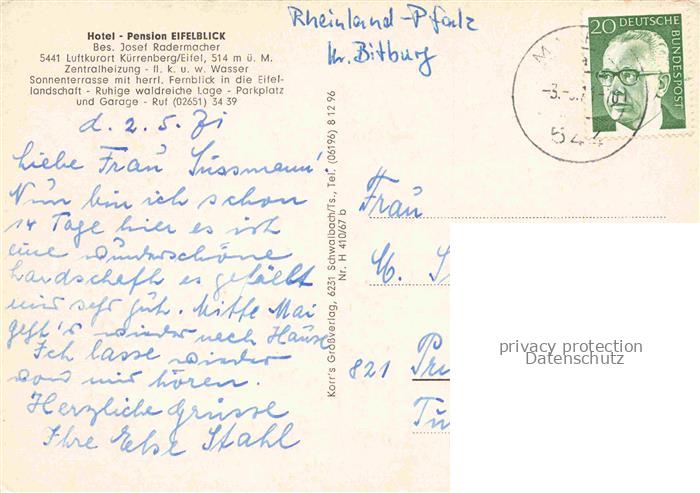 Hotel - Pension EIFELBLICK
Bes. Josef Radermacher
5441 Luftkurort Kürrenberg/Eifel, 514 m ü. M.
Zentralheizung - fl. k. u. w. Wasser
Sonnenterrasse mit herrl. Fernblick in die Eifel-
landschaft - Ruhige waldreiche Lage - Parkplatz
und Garage - Ruf (02651) 34 39
d. 2. 5. 71
Liebe Frau Süssmann!
Nun bin ich schon
14 Tage hier es ist
eine wunderschöne
Landschaft es gefällt
mir sehr gut. Mitte Mai
geht's wieder nach Hause
Ich lasse wieder
von mir hören.
Herzliche Grüsse
Ihre Else Stahl
Korr's Großverlag, 6231 Schwalbach/Ts., Tel. (06196) 8 12 96
Nr. H 410/67 b
Rheinland-Pfalz
Kr. Bitburg
20 DEUTSCHE
BUNDESPOST
544
Frau
M. S
821 Pr
privacy protection
Datenschutz